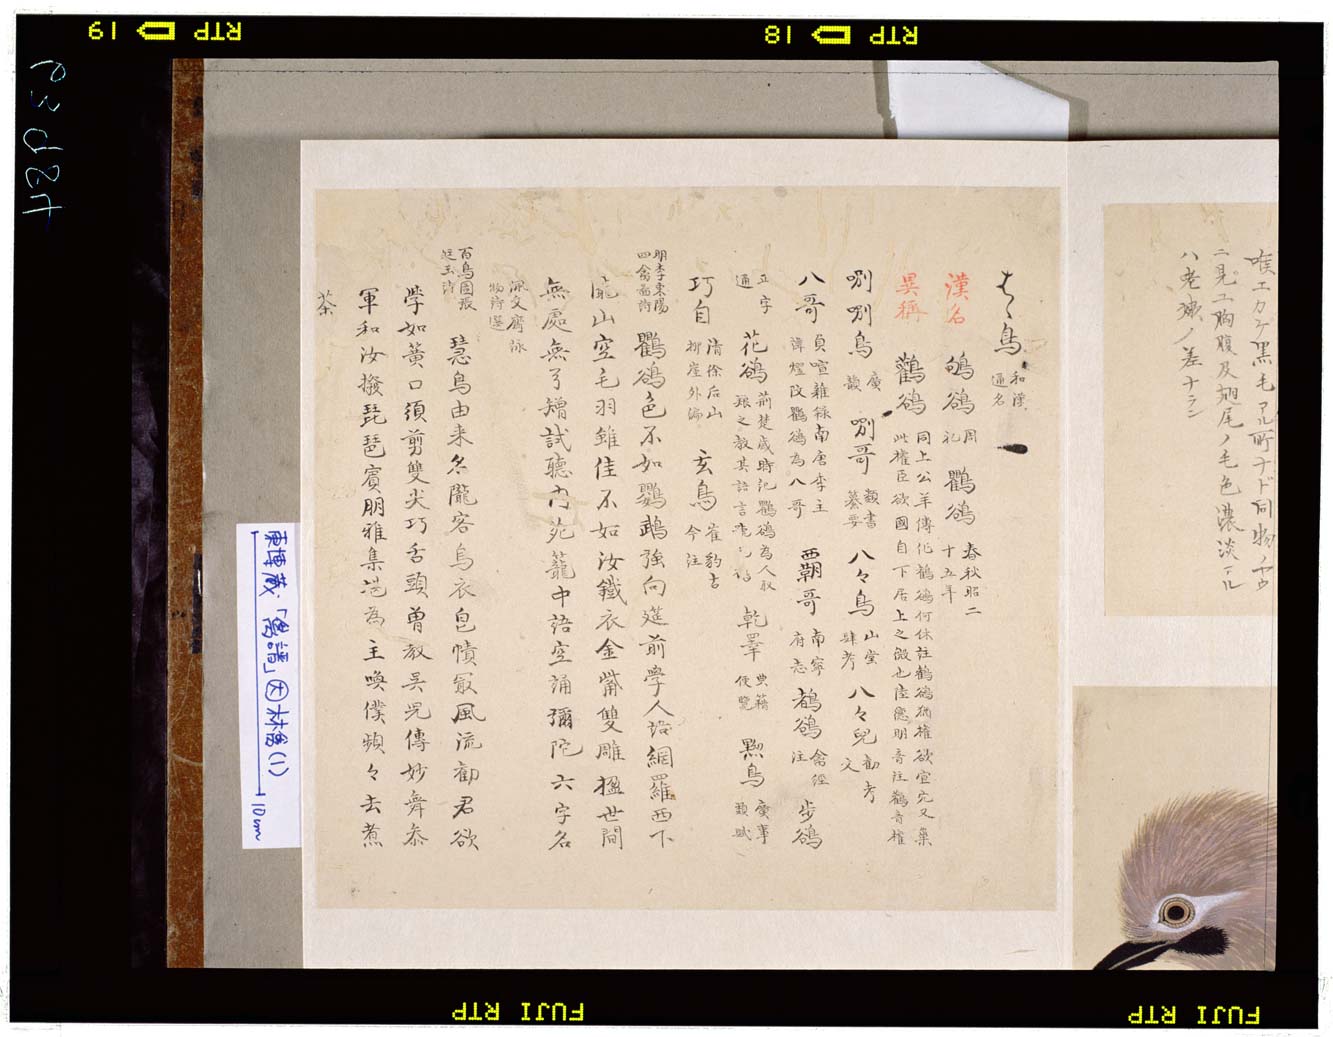 喉エカケ黒毛アル所ナド同物ノ
ニ見エ胸腹及翅尾ノ毛色濃淡アル
ハ老雄ノ差ナラン
はゝ鳥 和漢通名
漢名 鴝鵒 周礼 鸜鵒 春秋昭二十五年
異稱 鸛鵒 同上公羊傳作鸛鵒何休註鸛鵒猶権欲宣穴又巢
此権臣欲國自下居上之徴也陸徳明音注鸛音権
唎唎鳥 廣韻 唎哥 類書纂要 八々鳥 山堂肆考 八々兒 勸考文
八哥 負喧雜録南唐李主諱煜改鸜鵒為八哥 覇哥 南寧府志 鵲鵒 禽經注 步鵒
正字通 花鵒 荊楚歳時記鸜鵒為人取 養之教其語言 乾睪 典籍便覽 黙鳥 廣事類賦
巧自 清徐后山柳崖外編 玄鳥 崔豹古今注
明李東陽四禽圖詩 鸜鵒色不如鸚鵡強向筵前學人語網羅西下
隴山空毛羽雖佳不如汝鐵衣金觜雙雕楹世間
無處無弓矰試聽内苑籠中語空誦彌陀六字名
佩文齋詠物詩選
百鳥圖張廷玉詩 慧鳥由来名隴客烏衣皂幘最風流勸君欲
學如簧口須剪雙尖巧舌頭曾教吳兒傳妙舞參
軍和汝撥琵琶賓朋雅集誰為主喚僕頻々去煮
茶
東博蔵「禽譜」㊅林禽(1)
10cm
19 RTP
18 RTP
FUJI RTP
FUJI RTP